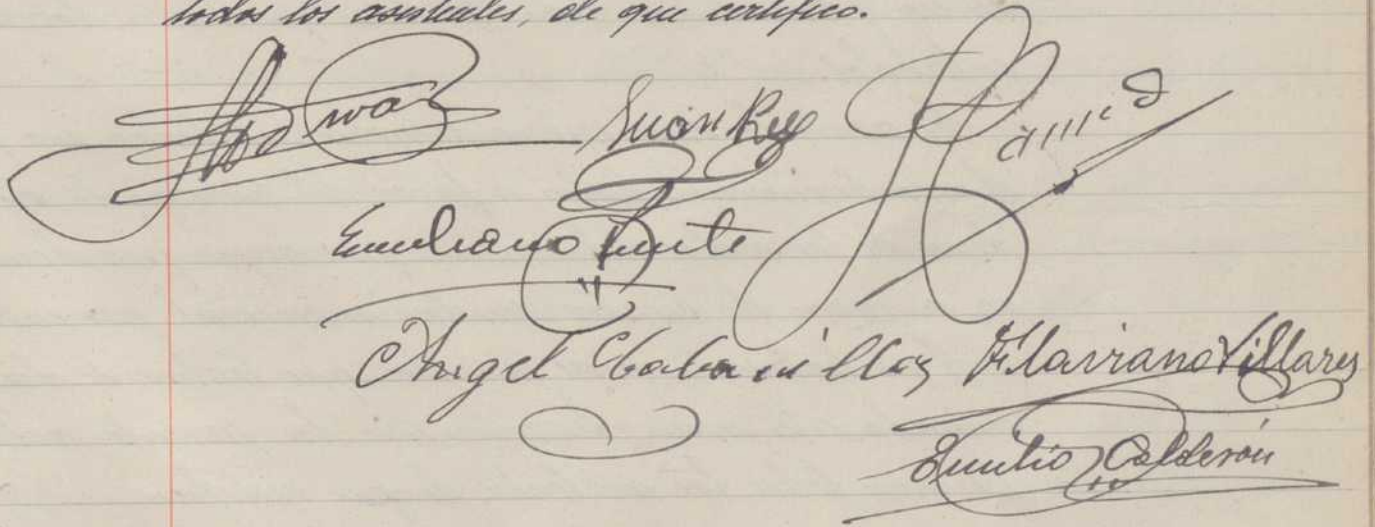 todos los asistentes, de que certifico.
Juan Rey
Emiliano Puente
Angel Cabanillas Flaviano Villares
Emilio Calderón